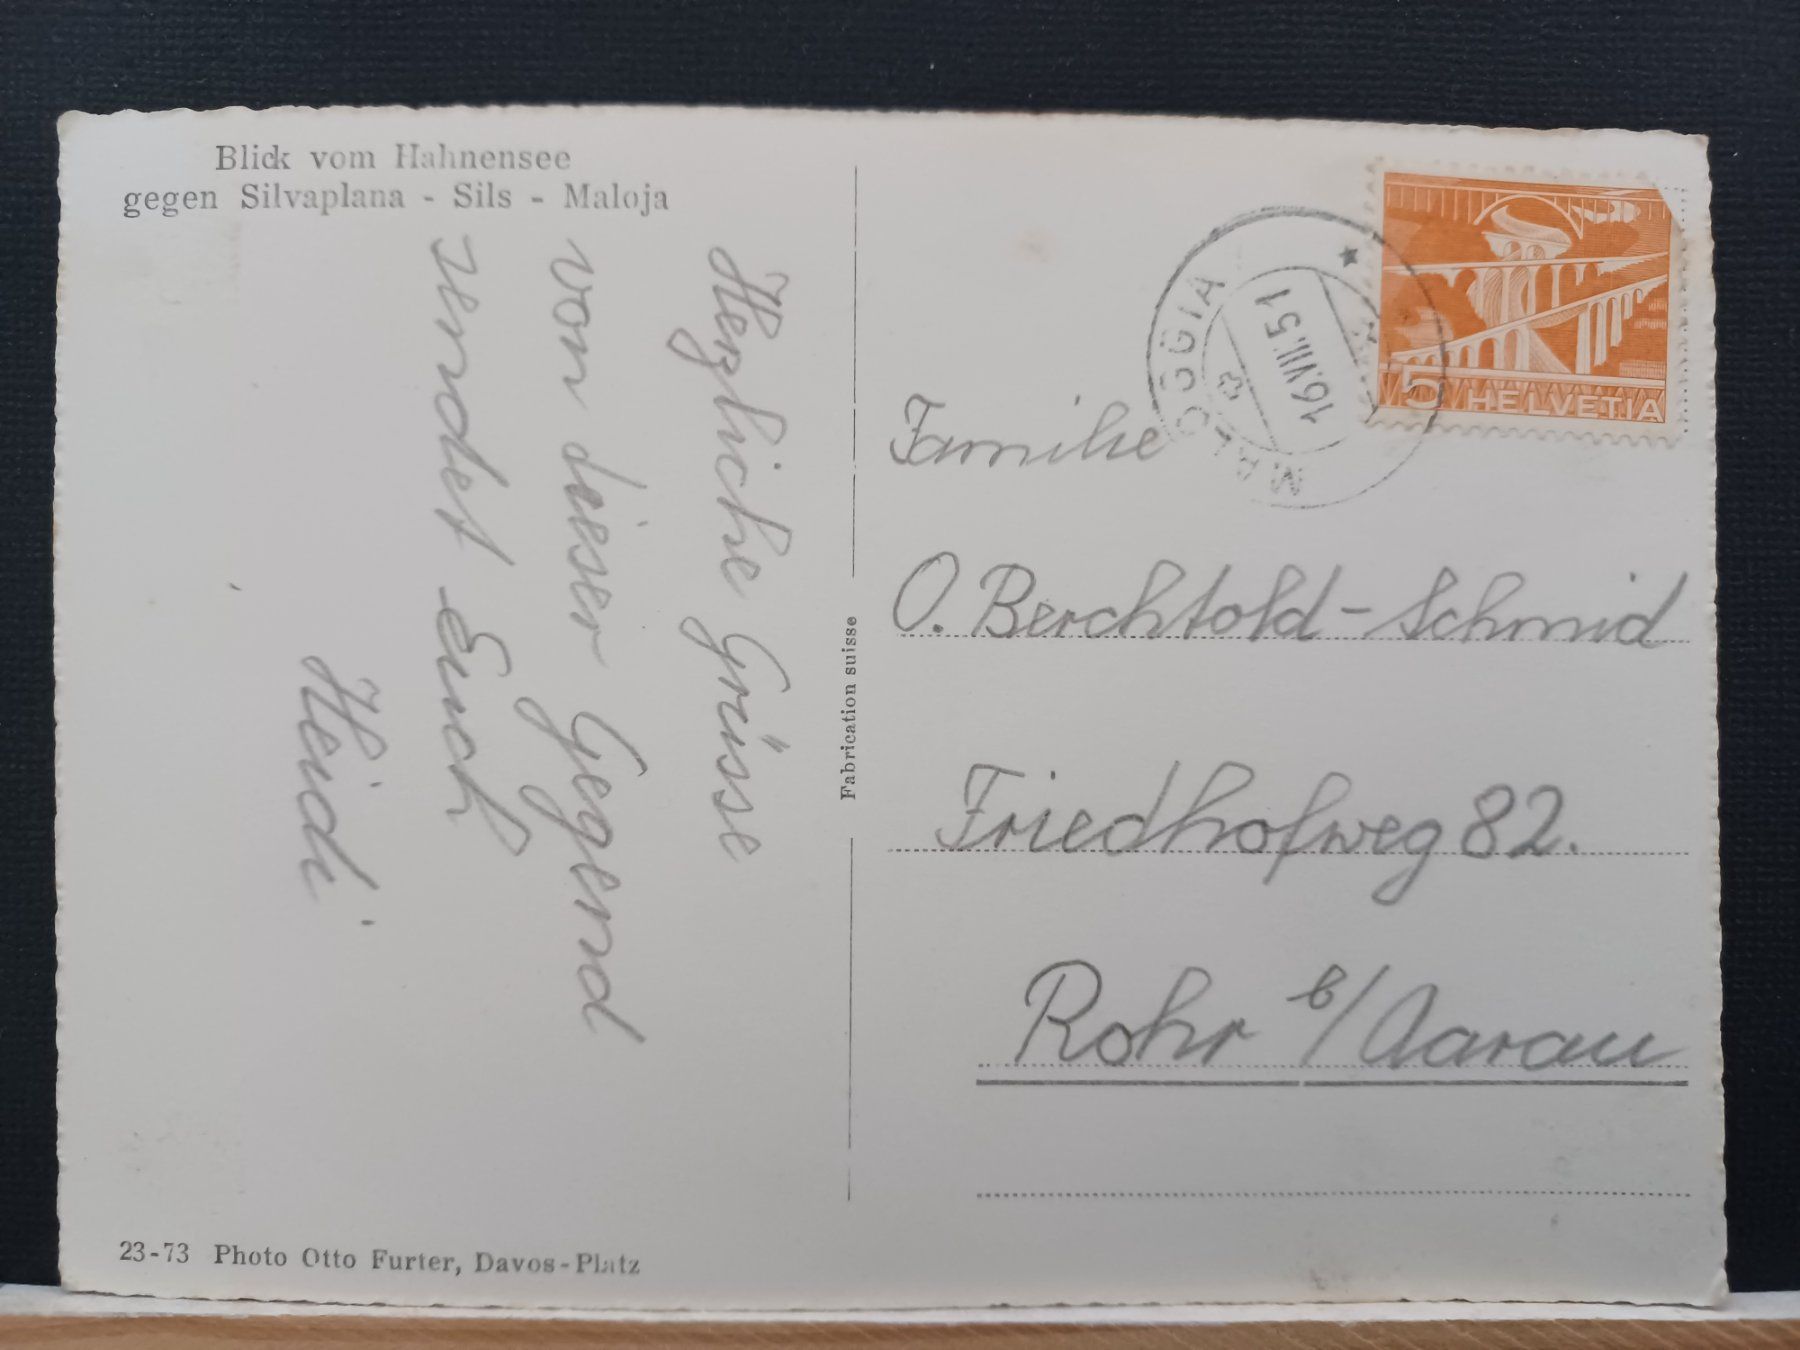 Blick vom Hahnensee
gegen Silvaplana - Sils - Maloja
Herzliche Grüsse
von dieser Gegend
sendet Euch
Heidi
23-73 Photo Otto Furter, Davos-Platz
Fabrication suisse
MALOGGIA
16.VII.51
5 HELVETIA
Familie
O. Berchtold-Schmid
Friedhofweg 82.
Rohr b/Aarau